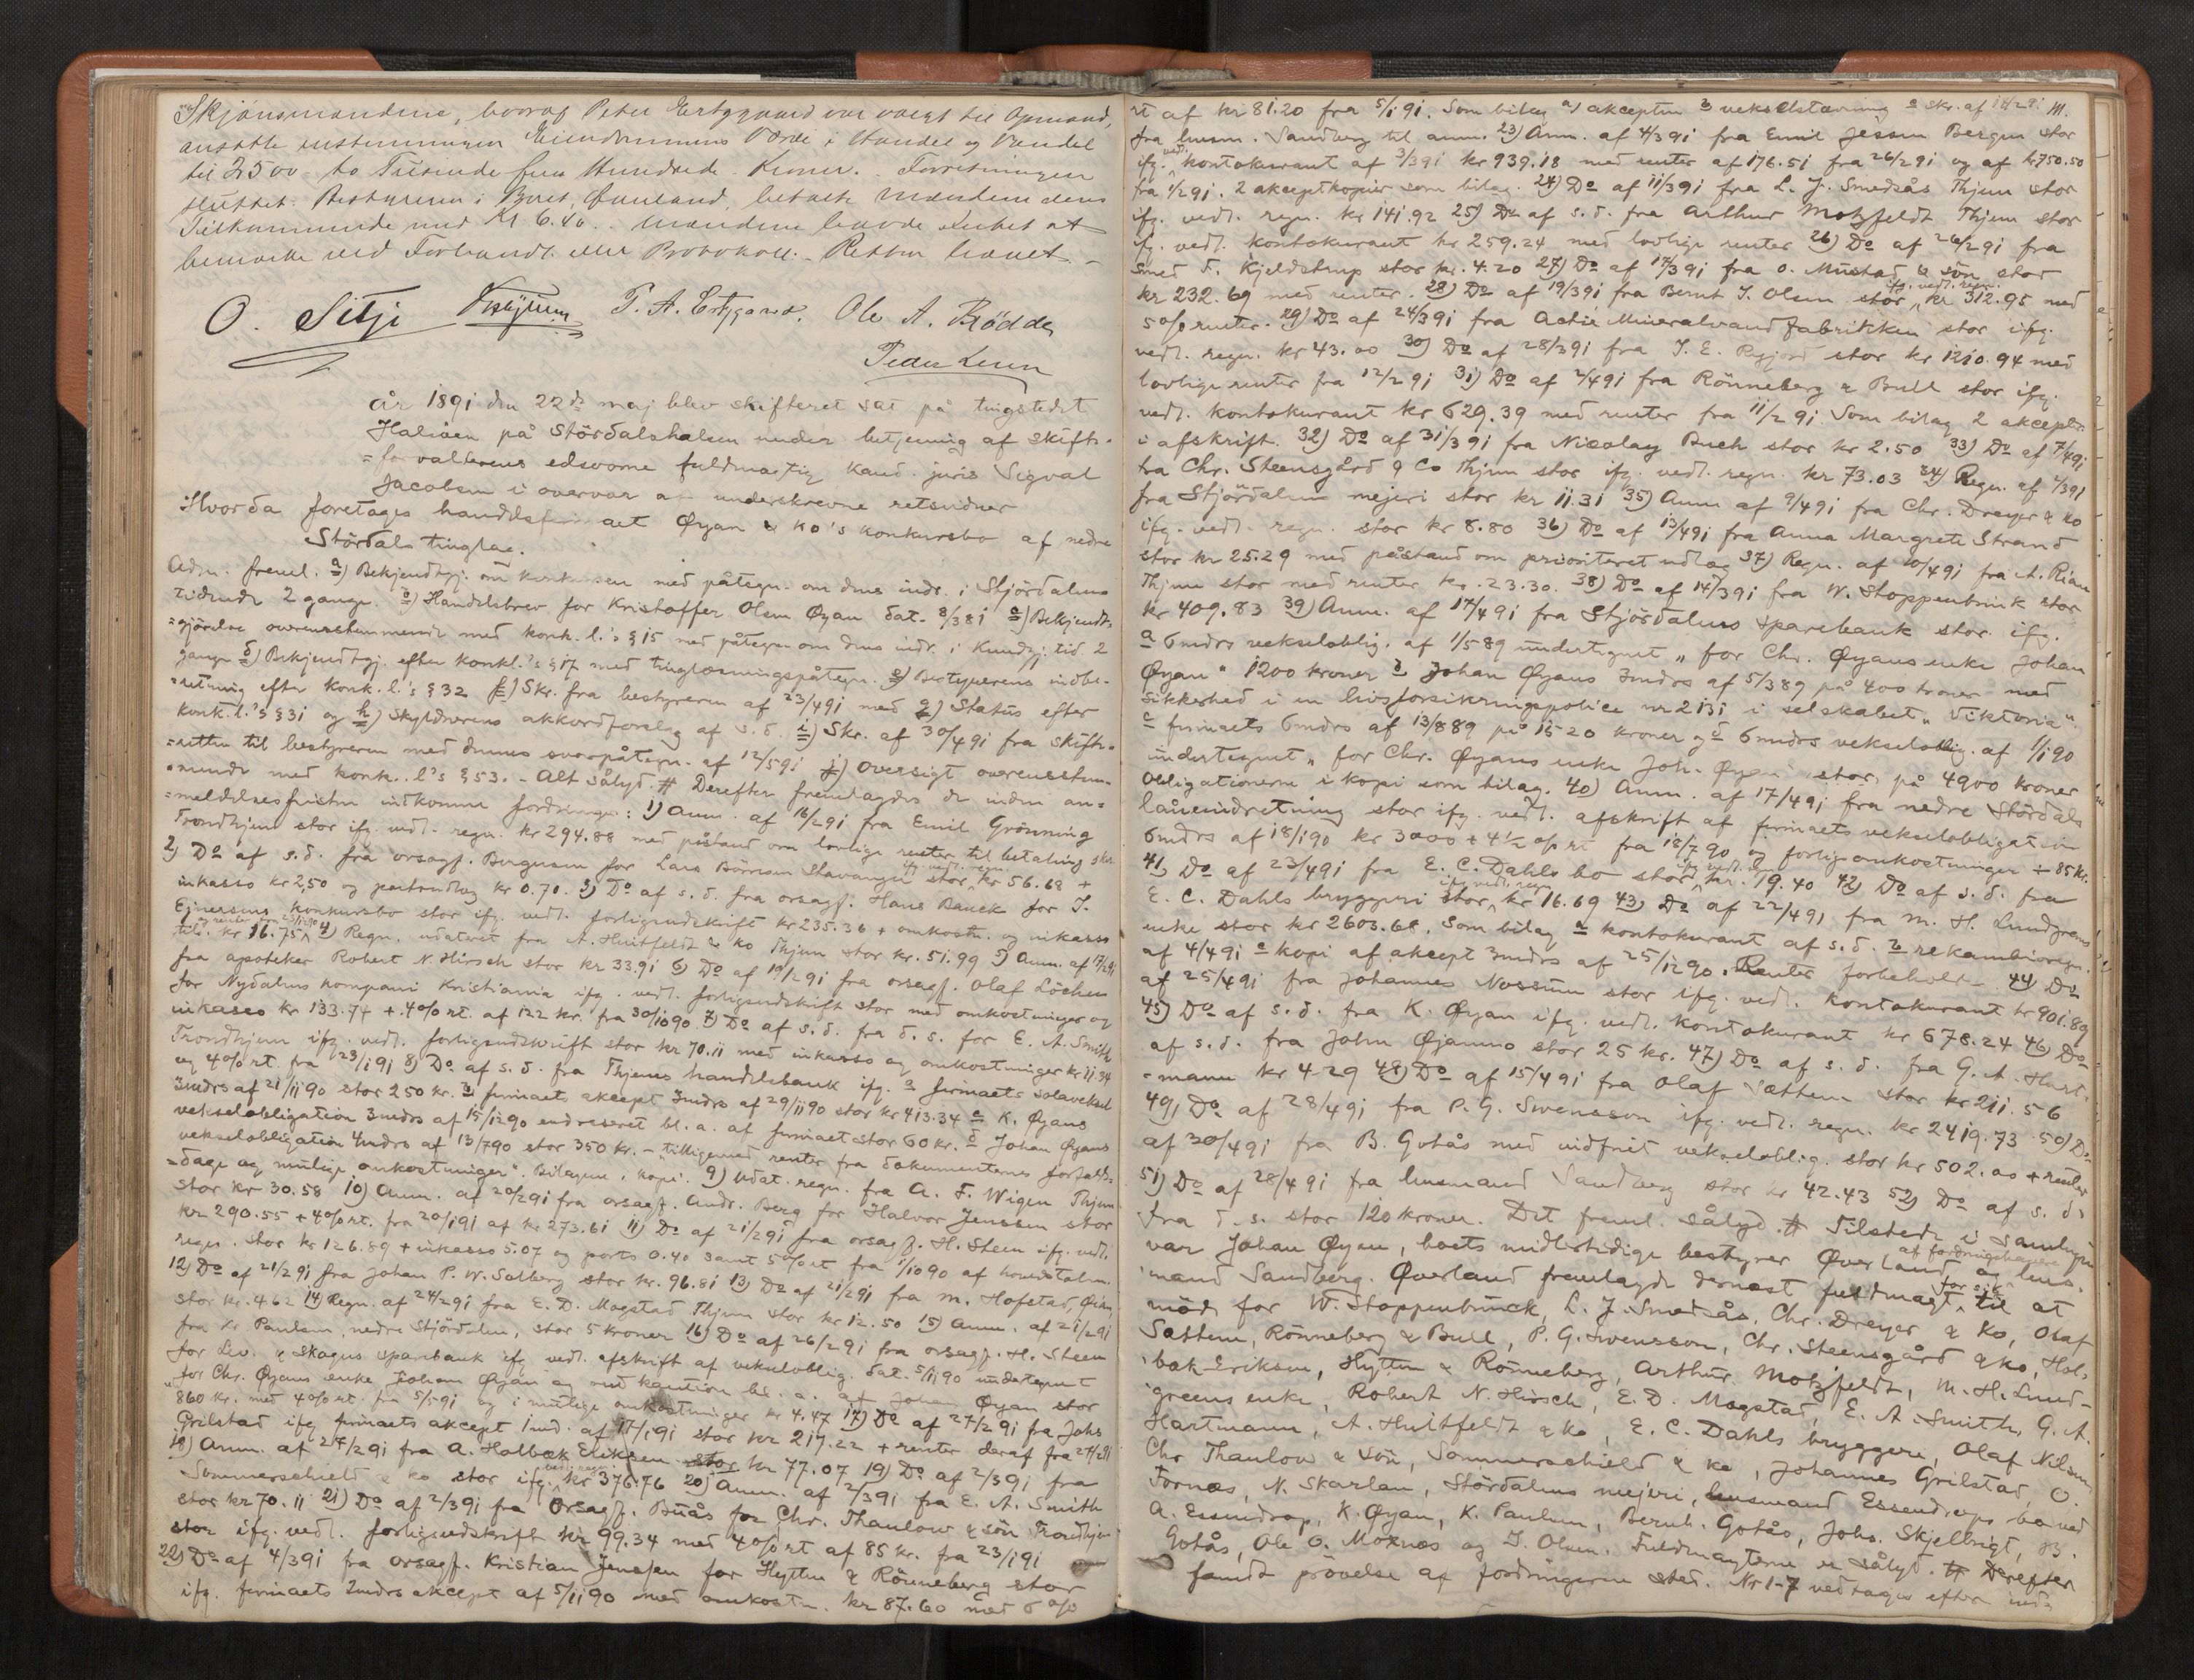 Skjønsmændene, hvoraf Peter Ertzgaard var valgt til Opmand,
ansatte enstemmigen Eiendommens Værdi i Handel og Vandel
til 2500 to Tusinde fem Hundrede Kroner. Forretningen
sluttet. Bestyreren i Boet, Øverland, betalte Mændene deres
Tilkommende med Kr 6.40. Mændene havde Intet at
bemærke ved Forhandl. eller Protokoll. Retten hævet.
O. Sitje P. A. Ertzgaard. Ole A. Brødde
Peder
år 1891 den 22de maj blev skifteret sat på tingstedet
Halsøen på Stördalshalsen under betjening af skifte-
=forvalterens edsvorne fuldmægtig kand. juris Sigval
Jacobsen i overvær af underskrevne retsvidner
Hvorda foretages handelsfirmaet Øyan & ko's konkursbo af nedre
Stördals tinglag.
Adm. freml. a) Bekjendtgj. om konkursen med påtegn. om dens indr. i Stjördalens
tidende 2 gange. b) Handelsbrev for Kristoffer Olsen Øyan dat. 8/3 81 c) Bekjendt=
=gjörelse overensstemmende med konk. l.'s § 15 med påtegn. om dens indr. i Kundgj. tid 2
gange d) Bekjendtgj. efter konkl.'s § 17 med tinglæsningspåtegn. e) Bestyrerens indbe-
=retning efter konk. l.'s § 32 f) Skr. fra bestyreren af 23/4 91 med g) Status efter
konk. l.'s § 31 og h) Skyldnerens akkordforslag af s. d. i) Skr. af 30/4 91 fra skifte=
=retten til bestyreren med dennes svarpåtegn. af 12/5 91 j) Oversigt overensstem-
=mende med konk. l's § 53. - Alt sålyd. # Derefter fremlagdes de inden an=
=meldelsesfristen indkomne fordringer: 1) Anm. af 16/2 91 fra Emil Grönning
Trondhjem stor ifg. vedl. regn. kr 294.88 med påstand om lovlige renter til betaling sker
2) Do af s.d. fra orsagf. Borgersen for Lars Börresen Stavanger stor ifg. vedl. regn. kr 56.68 +
inkasso kr 2,50 og postudlæg kr 0.70. 3) Do af s. d. fra orsagf. Hans Bauck for J.
Ejnersens konkursbo stor ifg. vedl. forligsudskrift kr 235.36 + omkostn. og inkasso
til. kr 16.75 4) Regn. udateret fra A. Huitfeldt & ko Thjem stor kr. 51.99 5) Anm. af 17/2 91
fra apoteker Robert N. Hirsch stor kr 33.91 6) Do af 19/2 91 fra orsagf. Olaf Löchen
for Nydalens kompani Kristiania ifg. vedl. forligsudskrift stor med omkostninger og
inkasso kr 133.74 + 4% rt. af 122 kr. fra 30/10 90 7) Do af s. d. fra d. s. for E. A. Smith
Trondhjem ifg. vedl. forligsudskrift stor kr 70.11 med inkasso og omkostninger kr 11.34
og 4% rt. fra 23/1 91 8) Do af s. d. fra Thjems handelsbank ifg. a firmaets solaveksel
3mdrs af 21/11 90 stor 250 kr. b firmaets akcept 3mdrs af 29/11 90 stor kr 413.34 c K. Øyans
vekselobligation 3mdrs af 15/12 90 endosseret bl. a. af firmaet stor 60 kr. d Johan Øyans
vekselobligation 4mdrs af 13/7 90 stor 350 kr. - "tilligemed renter fra dokumenternes forfalds=
=dage og mulige omkostninger". Bilagene i kopi. 9) Udat. regn. fra A. F. Wigen Thjem
stor kr 30.58 10) Anm. af 20/2 91 fra orsagf. Andr. Berg for Halvor Jenssen stor
kr 290.55 + 4% rt. fra 20/1 91 af kr 273.61 11) Do af 21/2 91 fra orsagf. H. Steen ifg. vedl.
regn. stor kr 126.89 + inkasso 5.07 og porto 0.40 samt 5% rt fra 1/10 90 af hovedstolen.
12) Do af 21/2 91 fra Johan P. W. Solberg stor kr. 96.81 13) Do af 21/2 91 fra M. Hofstad, Øian,
stor kr. 4.62 14) Regn. af 24/2 91 fra E. D. Mogstad Thjem stor kr 12.50 15) Anm. af 21/2 91
fra Kr Paulsen, nedre Stjördalen, stor 5 kroner 16) Do af 26/2 91 fra orsagf. H. Steen
for Lev. & Skogns sparebank ifg. vedl. afskrift af vekseloblig. dat. 5/11 90 undertegnet
"for Chr. Øyans enke Johan Øyan og med kaution bl. a. af Johan Øyan stor
860 kr. med 4% rt. fra 5/5 91 og i mulige omkostninger kr 4.47 17) Do af 27/2 91 fra Johs
Grilstad ifg. firmaets akcept 1 md. af 17/1 91 stor kr 217.22 + renter deraf fra 27/2 91
18) Anm. af 27/2 91 fra A. Holbæk Eriksen stor kr 77.07 19) Do af 2/3 91 fra
Sommerschield & ko stor ifg. vedl. regn. kr 376.76 20) Anm. af 2/3 91 fra E. A. Smith
stor kr 70.11 21) Do af 2/3 91 fra orsagf. Buås for Chr. Thaulow & sön Trondhjem
stor ifg. vedl. forligsudskrift kr 99.34 med 4% rt af 85 kr. fra 23/1 91
22) Do af 4/3 91 fra orsagf. Kristian Jenssen for Hytten & Rönneberg stor
ifg. firmaets 2mdrs akcept af 5/11 90 med omkostn. kr 87.60 med 6%
rt af kr 81.20 fra 5/1 91. Som bilag a) akcepten b vekselstævning c skr. af 18/2 91 M.
fra lensm. Sandberg til anm. 23) Anm. af 4/3 91 fra Emil Jessen Bergen stor
ifg. vedl. kontokurant af 3/3 91 kr 939.18 med renter af 176.51 fra 26/2 91 og af kr 750.50
fra 1/2 91. 2 akceptkopier som bilag. 24) Do af 11/3 91 fra L. J. Smedsås Thjem stor
ifg. vedl. regn. kr 141.92 25) Do af s. d. fra Arthur Motzfeldt Thjem stor
ifg. vedl. kontokurant kr 259.24 med lovlige renter 26) Do af 26/2 91 fra
smed F. Kjeldstrup stor kr. 4.20 27) Do af 17/3 91 fra O. Mustad & sön stor
kr 232.69 med renter. 28) Do af 19/3 91 fra Bernt J. Olsen stor ifg. vedl. regn. kr 312.95 med
5% renter. 29) Do af 24/3 91 fra Actie Mineralvandfabrikken stor ifg.
vedl. regn. kr 43.00 30) Do af 28/3 91 fra J. E. stor kr 1210.94 med
lovlige renter fra 12/2 91 31) Do af 2/4 91 fra Rönneberg & Bull stor ifg.
vedl. kontokurant kr 629.39 med renter fra 11/2 91. Som bilag 2 akcepter
i afskrift. 32) Do af 31/3 91 fra Nicolay Buch stor kr 2.50 33) Do af 7/4 91
fra Chr. Steensgård & Co Thjem stor ifg. vedl. regn. kr 73.03 34) Regn. af 2/3 91
fra Stjördalens mejeri stor kr 11.31 35) Anm af 9/4 91 fra Chr. Dreyer & ko
ifg. vedl. regn. stor kr 8.80 36) Do af 13/4 91 fra Anna Margrete Strand
stor kr 25.29 med påstand om prioriteret udlæg 37) Regn. af 10/4 91 fra A. Rian
Thjem stor med renter kr. 23.30. 38) Do af 14/3 91 fra W. Stoppenbrink stor
kr 409.83 39) Anm. af 17/4 91 fra Stjördalens sparebank stor ifg.
a 6mdrs vekseloblig. af 1/5 89 undertegnet "for Chr. Øyans enke Johan
Øyan" 1200 kroner b Johan Øyans 3mdrs af 5/3 89 på 400 kroner med
sikkerhed i en livsforsikringspolice nr 2131 i selskabet "Viktoria"
c firmaets 6mdrs af 13/8 89 på 1520 kroner og d 6mdrs vekseloblig. af 1/1 90
undertegnet "for Chr. Øyans enke Joh. Øyan" stor på 4900 kroner
Obligationerne i kopi som bilag. 40) Anm. af 17/4 91 fra nedre Stördals
låneindretning stor ifg. vedl. afskrift af firmaets vekselobligation
6mdrs af 18/1 90 kr 3000 + 4½% rt fra 18/7 90 og forligsomkostninger ÷ 85 kr.
41) Do af 23/4 91 fra E. C. Dahls bo stor ifg. vedl. regn. kr. 19.40 42) Do af s. d. fra
E. C. Dahls bryggeri stor ifg. vedl. regn. kr 16.69 43) Do af 22/4 91 fra M. H. Lundgreens
enke stor kr 2603.68. Som bilag a kontokurant af s. d. b rekambioregn.
af 4/4 91 c kopi af akcept 3mdrs af 25/12 90. Renter forbeholdt. 44) Do
af 25/4 91 fra Johannes Nossum stor ifg. vedl. kontokurant kr 901.89
45) Do af s. d. fra K. Øyan ifg. vedl. kontokurant kr 678.24 46) Do
af s. d. fra John Øjanmo stor 25 kr. 47) Do af s. d. fra G. A. Hart-
=mann kr 4.29 48) Do af 15/4 91 fra Olaf Sættem stor kr 211.56
49) Do af 28/4 91 fra P. G. Swensson ifg. vedl. regn. kr 2419.73. 50) Do
af 30/4 91 fra B. Gotås med vidfriet vekseloblig. stor kr 502.00 + renter
51) Do af 28/4 91 fra lensmand Sandberg stor kr 42.43 52) Do af s. d.
fra d. s. stor 120 kroner. Det freml. sålyd. # Tilstede i samlingen
var Johan Øyan, boets midlertidige bestyrer Øverland og af fordringshavere lens=
mand Sandberg. Øverland fremlagde dernæst fuldmagt for sig til at
möde for W. Stoppenbrinck, L. J. Smedsås, Chr. Dreyer & Ko, Olaf
Sættem, Rönneberg & Bull, P. G. Swensson, Chr. Steensgård & ko, Hol-
bæk Eriksen, Hytten & Rönneberg, Arthur Motzfeldt, M. H. Lund-
greens enke, Robert N. Hirsch, E. D. Mogstad, E. A. Smith, G. A.
Hartmann, A. Huitfeldt & ko, E. C. Dahls bryggeri, Olaf Nilsen,
Chr Thaulow & sön, Sommerschield & ko, Johannes Grilstad, O.
Fornæs, N. Skarlan, Stördalens mejeri, lensmand Essendrops bo ved
A. Essendrop, K. Øyan, K. Paulsen, Bernh. Gotås, Johs. Skjelbrigt, B.
Gotås, Ole O. Moxnæs og J. Olsen. Fuldmagterne er sålyd. # Derefter
fandt prövelse af fordringerne sted. Nr 1-7 vedtages efter